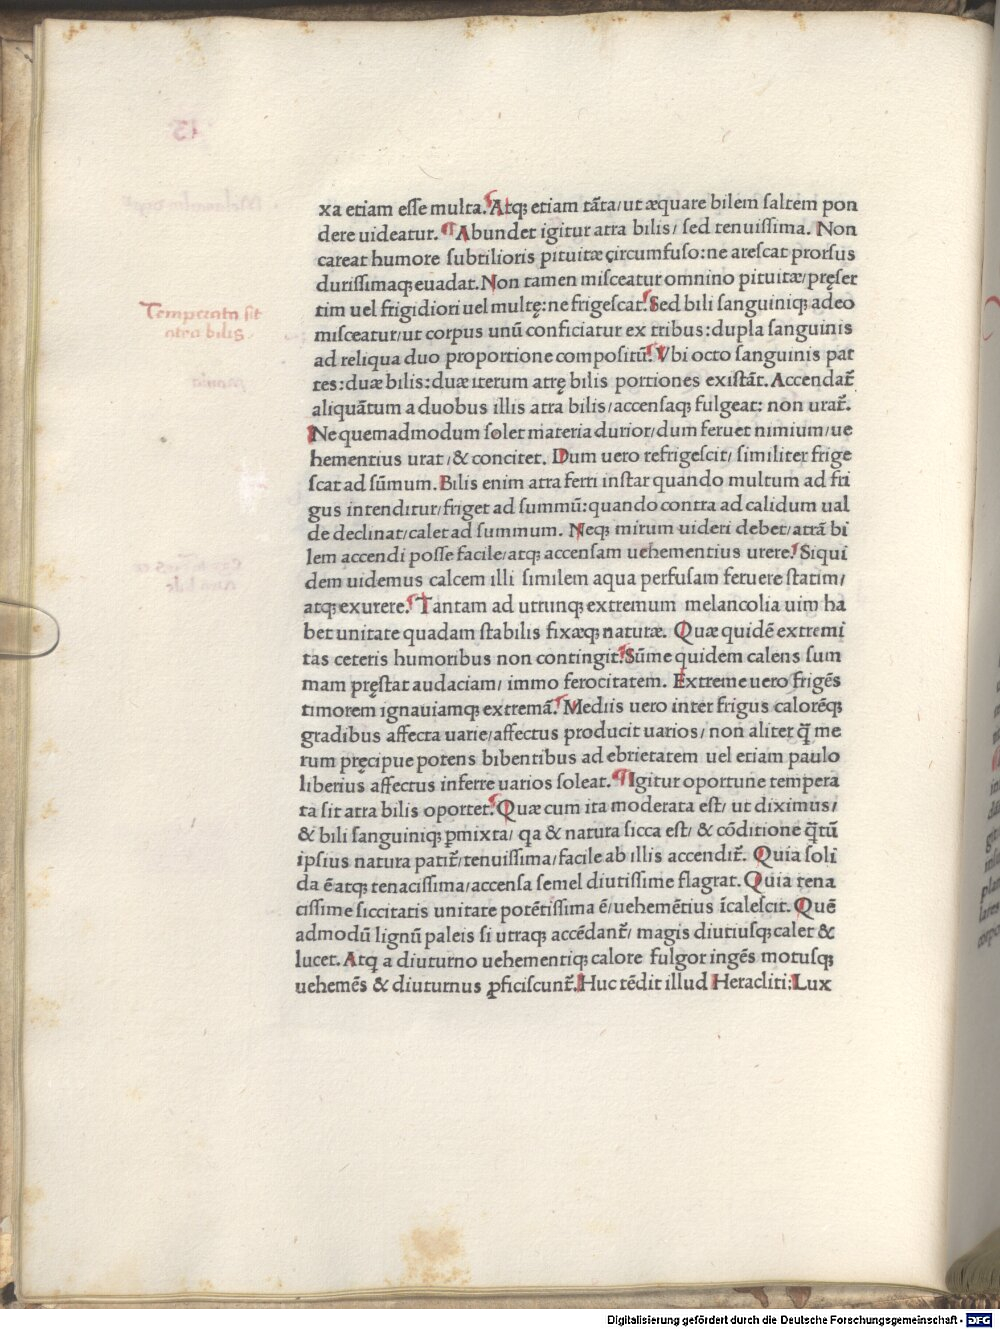 xa etiam esse multa. Atq; etiam tāta/ut æquare bilem saltem pon
dere uideatur. Abundet igitur atra bilis/ sed tenuissima. Non
careat humore subtilioris pituitæ circumfuso: ne arescat prorsus
durissimaq; euadat. Non tamen misceatur omnino pituitæ/pręser
tim uel frigidiori uel multę: ne frigescat. Sed bili sanguiniq; adeo
Temperata sit
atra bilis
misceatur/ut corpus unū conficiatur ex tribus: dupla sanguinis
ad reliqua duo proportione compositū. Vbi octo sanguinis par
tes: duæ bilis: duæ iterum atrę bilis portiones existāt. Accendat᷑
aliquātum a duobus illis atra bilis/accensaq; fulgeat: non urat᷑.
Ne quemadmodum solet materia durior/dum feruet nimium/ue
hementius urat/& concitet. Dum uero refrigescit/ similiter frige
scat ad sūmum. Bilis enim atra ferri instar quando multum ad fri
gus intenditur/friget ad summū: quando contra ad calidum ual
de declinat/calet ad summum. Neq; mirum uideri debet/atrā bi
lem accendi posse facile/atq; accensam uehementius urere. Siqui
dem uidemus calcem illi similem aqua perfusam feruere statim/
atq; exurere. Tantam ad utrunq; extremum melancolia uim ha
bet unitate quadam stabilis fixæq; naturæ. Quæ quidē extremi
tas ceteris humoribus non contingit. Sūme quidem calens sum
mam pręstat audaciam/ immo ferocitatem. Extreme uero frigēs
timorem ignauiamq; extremā. Mediis uero inter frigus calorēq;
gradibus affecta uarie/affectus producit uarios/ non aliter q̄ me
rum pręcipue potens bibentibus ad ebrietatem uel etiam paulo
liberius affectus inferre uarios soleat. Igitur oportune tempera
ta sit atra bilis oportet. Quæ cum ita moderata est/ ut diximus/
& bili sanguiniq; ꝑmixta/ qa & natura sicca est/ & cōditione q̄tū
ipsius natura patit᷑/tenuissima/facile ab illis accendit᷑. Quia soli
da ē atq; tenacissima/accensa semel diutissime flagrat. Quia tena
cissime siccitatis unitate potētissima ē/uehemētius īcalescit. Quē
admodū lignū paleis si utraq; accēdant᷑/ magis diutiusq; calet &
lucet. Atq a diuturno uehementiq; calore fulgor ingēs motusq;
uehemēs & diuturnus ꝓficiscunt᷑. Huc tēdit illud Heracliti; Lux
Digitalisierung gefördert durch die Deutsche Forschungsgemeinschaft - DFG